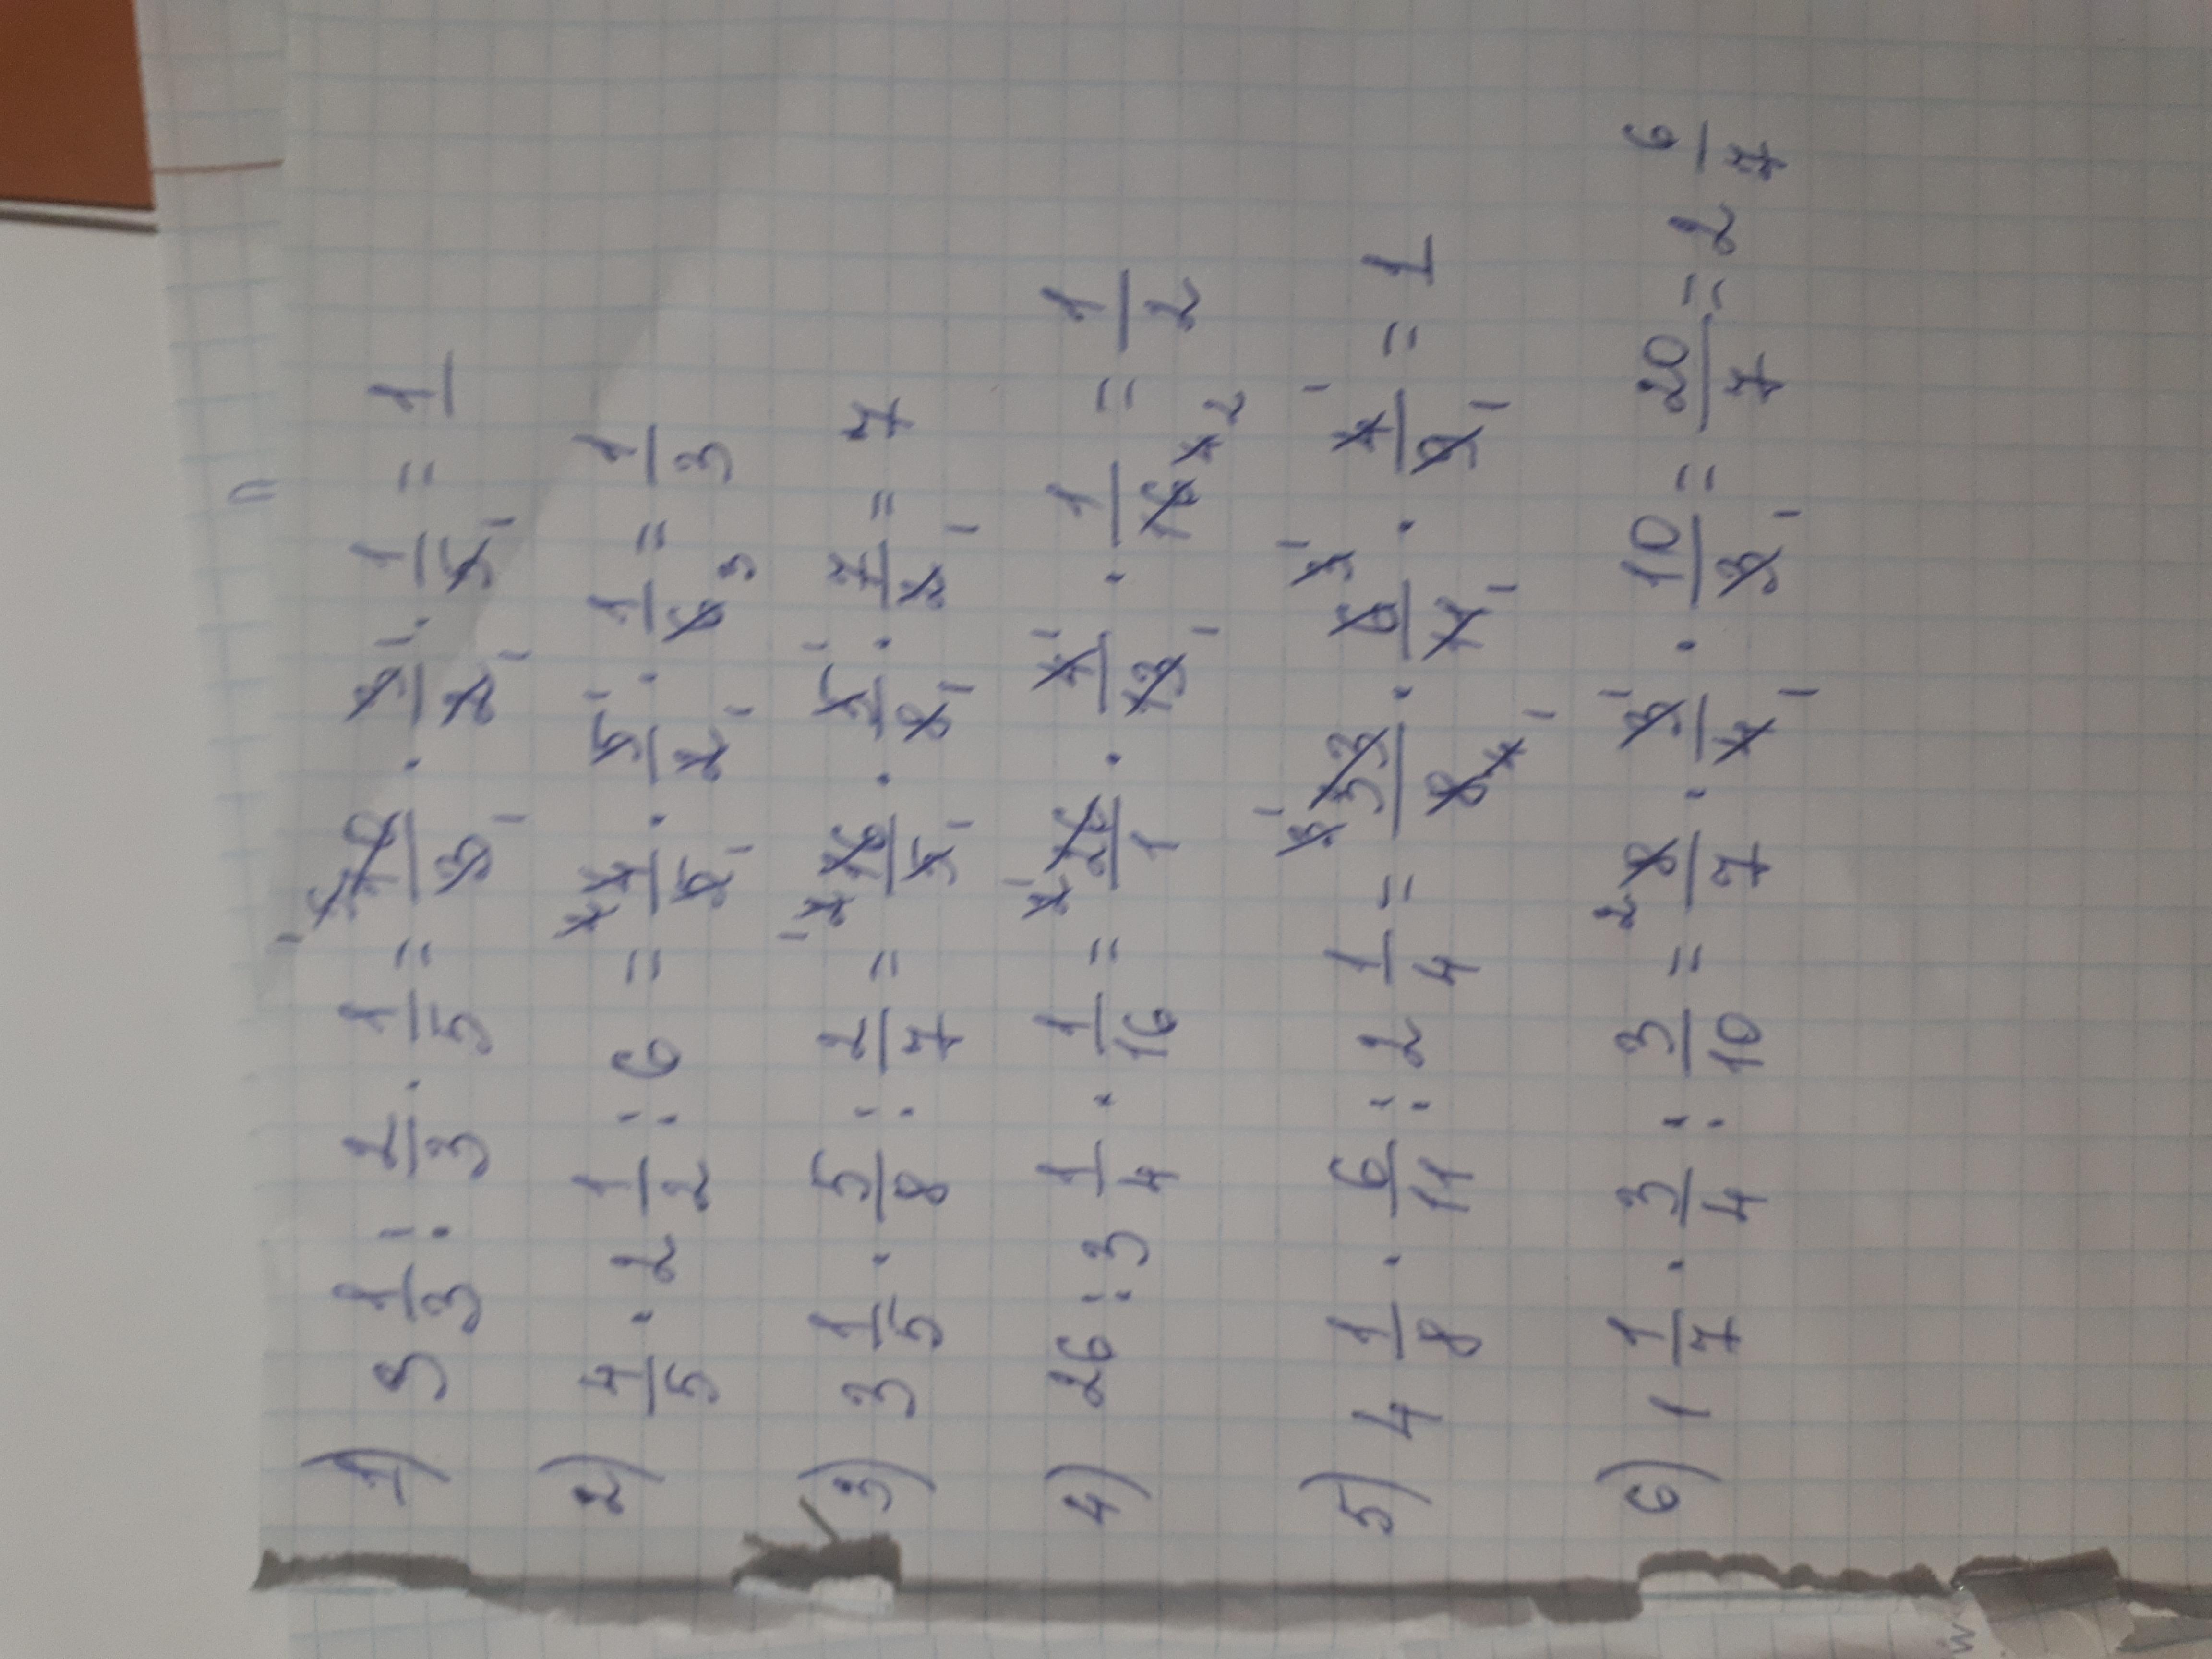 1) 3 1/3 : 2/3 · 1/5 = 10/3 · 3/2 · 1/5 = 1
2) 4/5 · 2 1/2 : 6 = 4/5 · 5/2 · 1/6 = 1/3
3) 3 1/5 · 5/8 : 2/7 = 16/5 · 5/8 · 7/2 = 7
4) 26 : 3 1/4 · 1/16 = 26/1 · 4/13 · 1/16 = 1/2
5) 4 1/8 · 6/11 : 2 1/4 = 33/8 · 6/11 · 4/9 = 1
6) 1 1/7 · 3/4 : 3/10 = 8/7 · 3/4 · 10/3 = 20/7 = 2 6/7